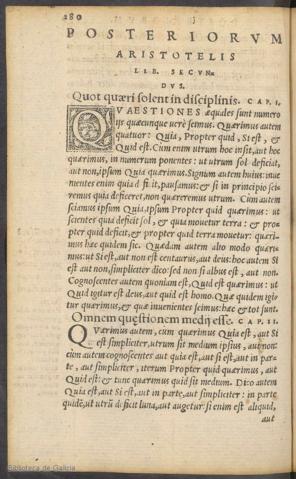 280
POSTERIORVM
ARISTOTELIS
LIB. SECVN-
DVS.
Quot quæri solent in disciplinis. CAP. I.
QVAESTIONES æquales sunt numero
ijs quæcunque verè scimus. Quærimus autem
quatuor: Quia, Propter quid, Si est, &
Quid est. Cum enim utrum hoc insit, aut hoc
quærimus, in numerum ponentes: ut utrum sol deficiat,
aut non, ipsum Quia quærimus. Signum autem huius: inue
nientes enim quia deficit, pausamus: & si in principio sci-
remus quia deficeret, non quæreremus utrum. Cum autem
sciamus ipsum Quia, ipsum Propter quid quærimus: ut
scientes quia deficit sol, & quia mouetur terra: & pro-
pter quid deficit, & propter quid terra mouetur: quæri-
mus hæc quidem sic. Quædam autem alio modo quæri-
mus: ut Si est, aut non est centaurus, aut deus: hoc autem Si
est aut non, simpliciter dico: sed non si albus est, aut non.
Cognoscentes autem quoniam est, Quid est quærimus: ut
Quid igitur est deus, aut quid est homo. Quæ quidem igi-
tur quærimus, & quæ inuenientes scimus: hæc & tot sunt.
Omnem quęstionem medij esse. CAP. II.
QVærimus autem, cum quærimus Quia est, aut Si
est simpliciter, utrum sit medium ipsius, aut non:
cùm autem cognoscentes aut quia est, aut si est, aut in par-
te, aut simpliciter, iterum Propter quid quærimus, aut
Quid est: & tunc quærimus quid sit medium. Dico autem
Quia est, aut Si est, aut in parte, aut simpliciter: in parte
quidē, ut utrū deficit luna, aut augetur: si enim est aliquid,
aut
Biblioteca de Galicia